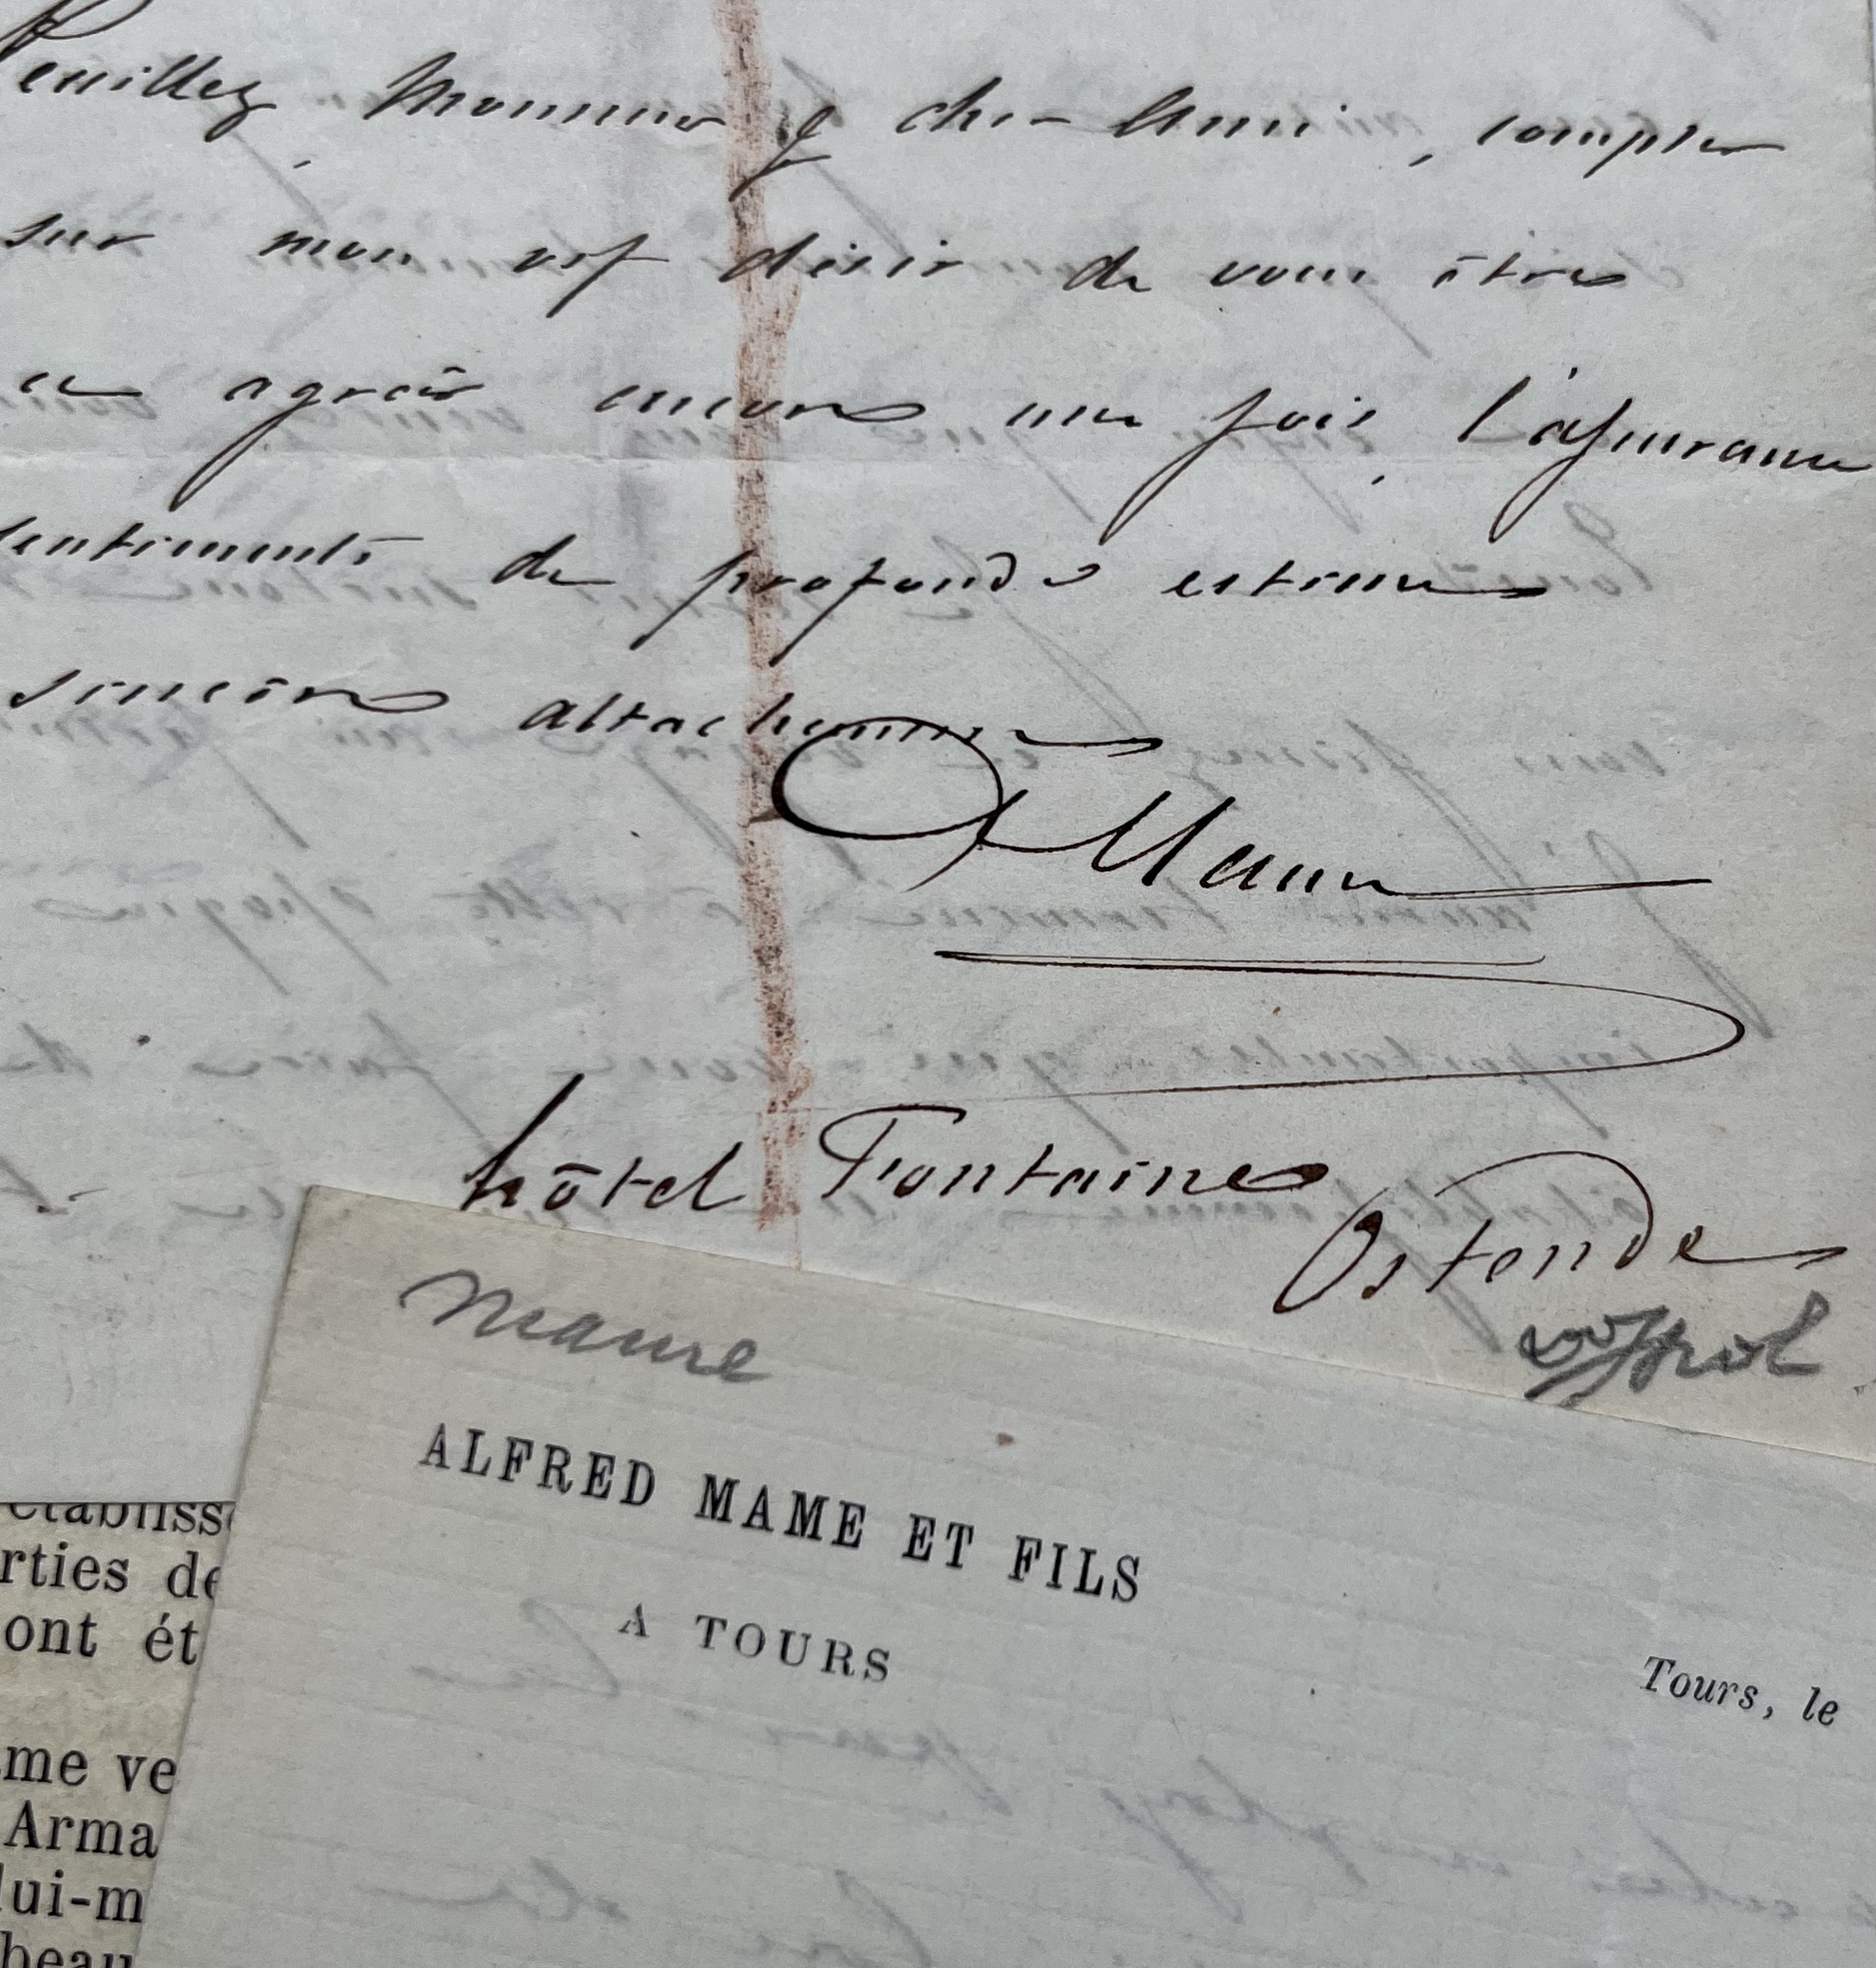 Veuillez, Monsieur & cher Ami, compter
sur mon vif désir de vous être
agréer encore une fois, l'assurance
sentiments de profonde estime
sincère attachement
Mame
hôtel Fontaine
Ostende
Mame
ALFRED MAME ET FILS
A TOURS
Tours, le
établiss
rties de
ont ét
me ve
Arma
lui-m
beau